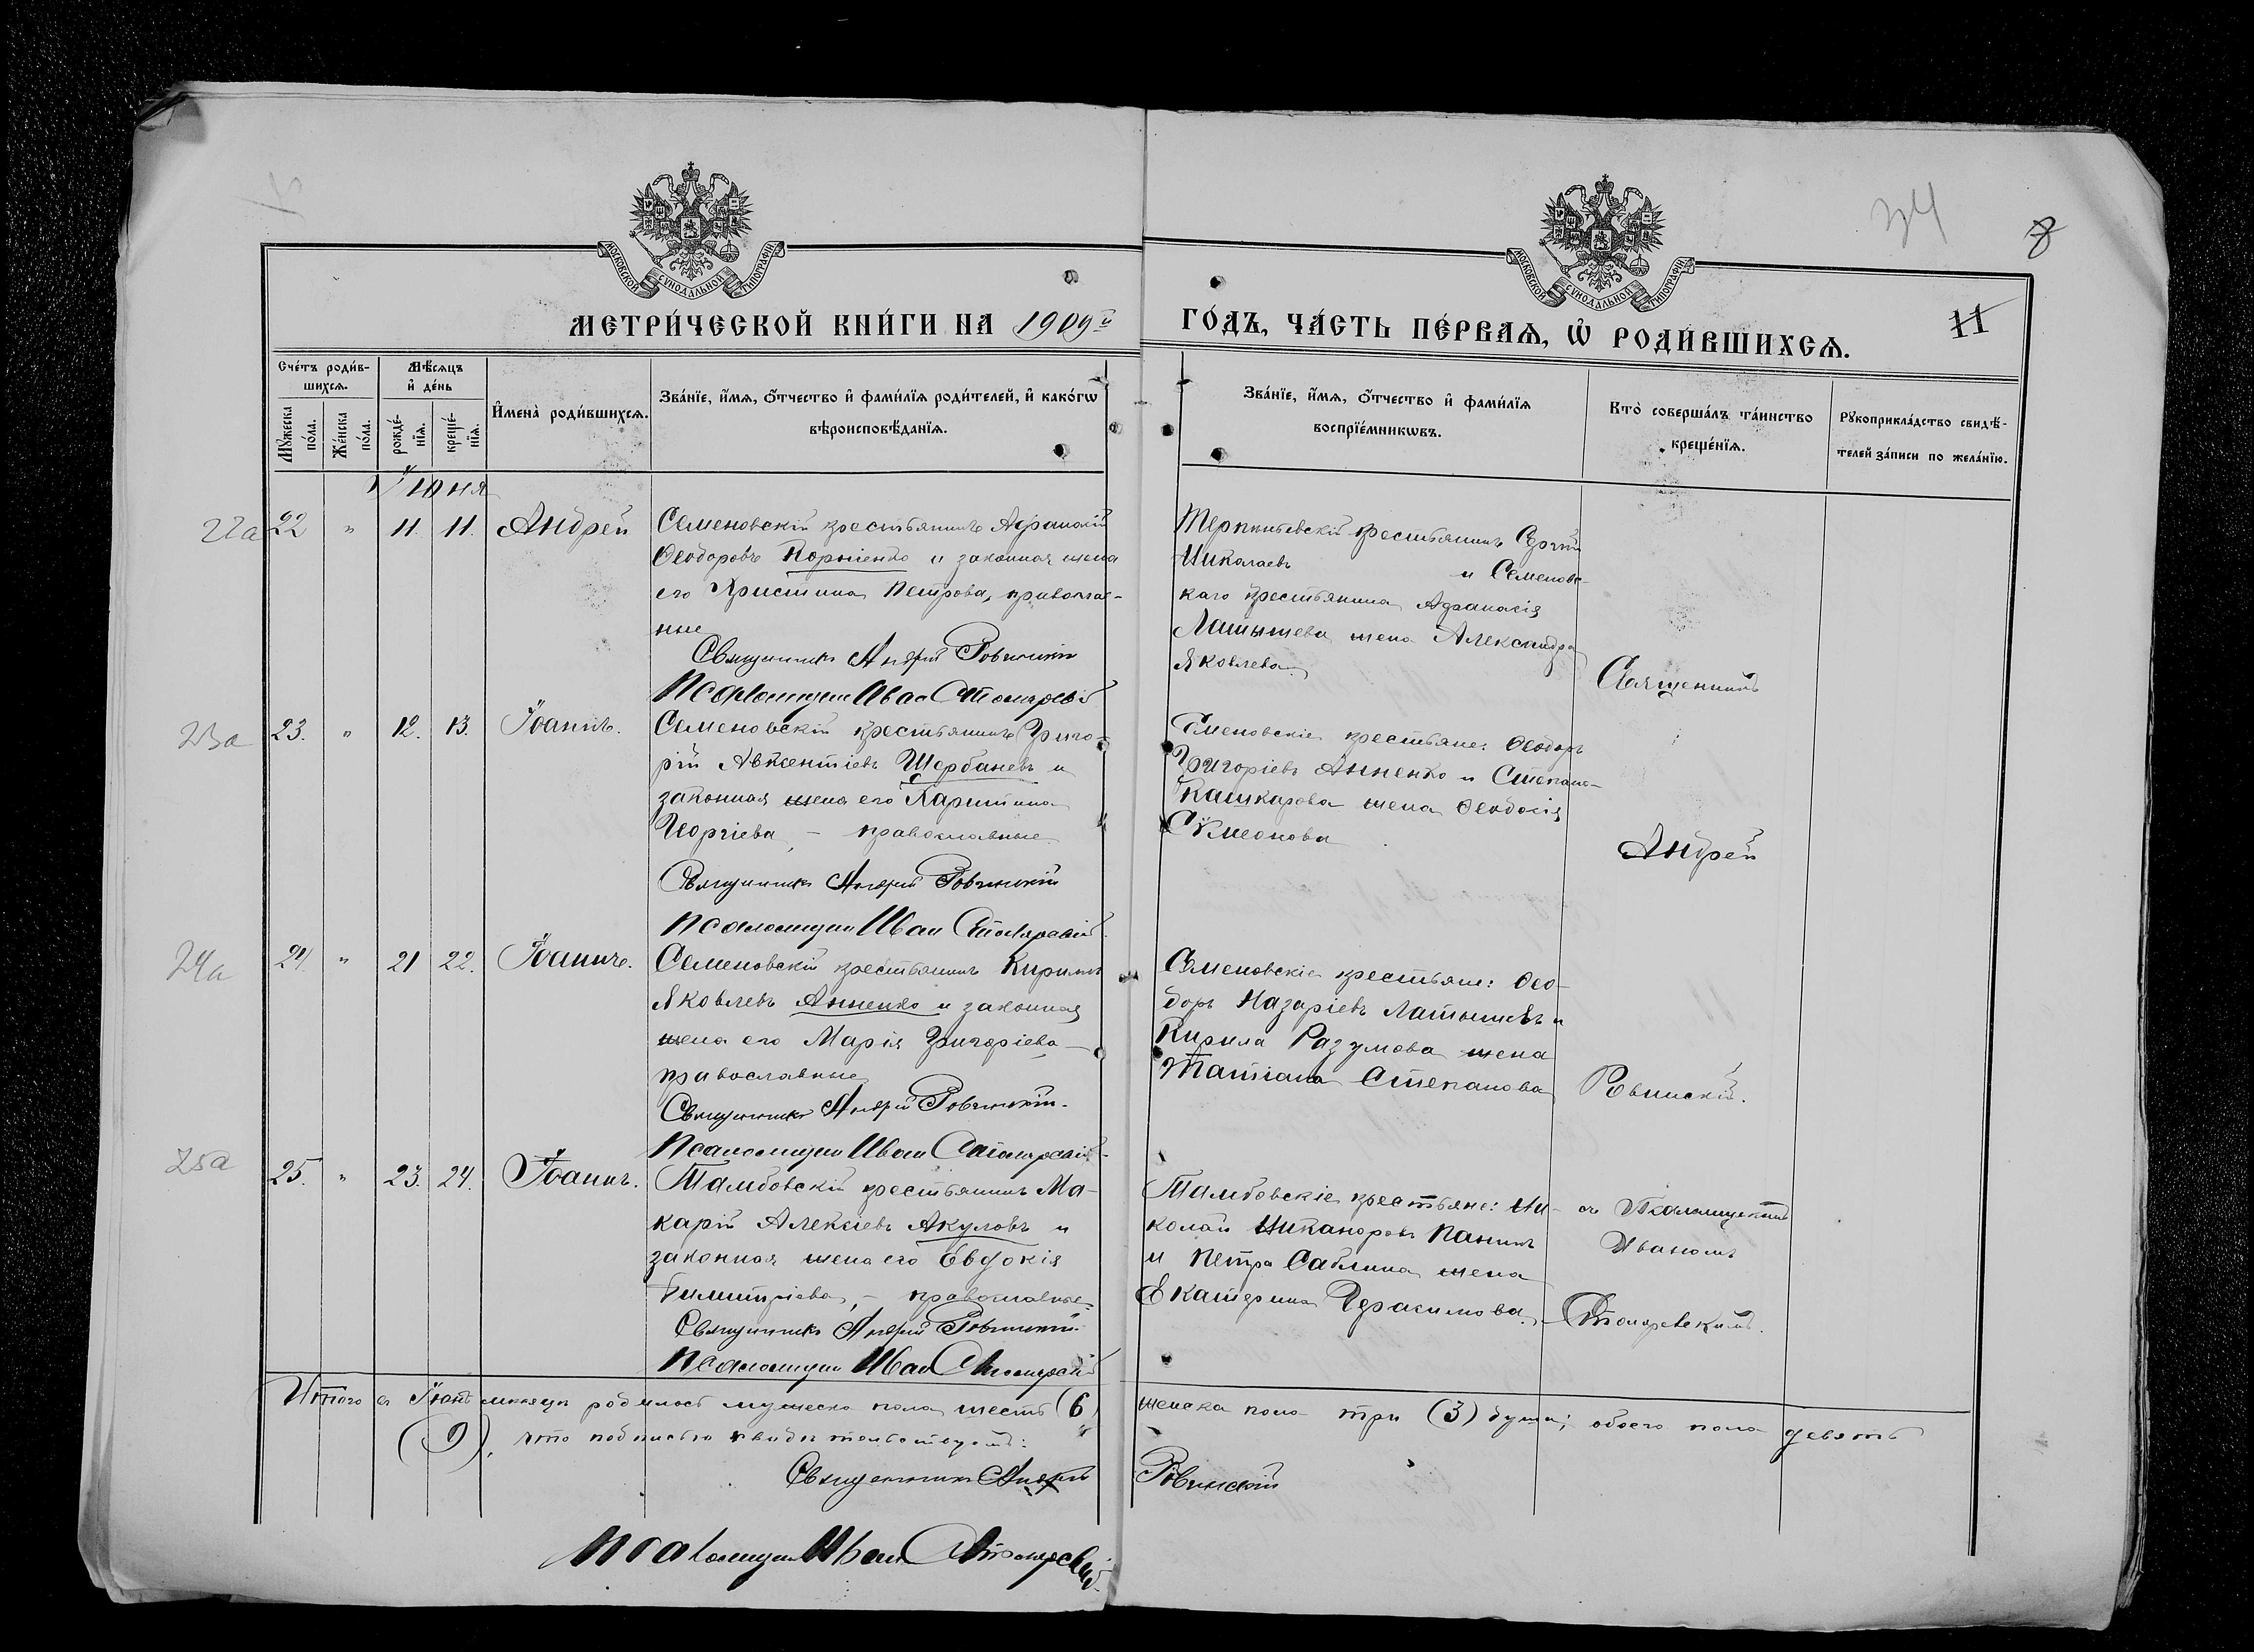 34
8
МОСКОВСКОЙ СѴНОДАЛЬНОЙ ТИПОГРАФІИ
МОСКОВСКОЙ СѴНОДАЛЬНОЙ ТИПОГРАФІИ
МЕТРИ́ЧЕСКОЙ КНИ́ГИ НА 1909й
ГО́ДЪ, ЧА́СТЬ ПЕ́РВАѦ, Ѡ҆ РОДИ́ВШИХСѦ.
11
Сче́тъ роди́в-
шихсѧ.
Мꙋ́жеска по́ла.
Же́нска по́ла.
Мѣ́сѧцъ
и҆ де́нь
рожде́-
нїѧ.
креще́-
нїѧ.
И҆мена̀ роди́вшихсѧ.
Зва́нїе, и҆́мѧ, ѻ҆́тчество и҆ фами́лїѧ роди́телей, и҆ како́гѡ
вѣроисповѣ́данїѧ.
Зва́нїе, и҆́мѧ, ѻ҆́тчество и҆ фами́лїѧ
воспрїе́мникѡвъ.
Кто̀ соверша́лъ та́инство
креще́нїѧ.
Рꙋкоприкла́дство свидѣ́-
телей за́писи по жела́нїю.
Іюня
22а 22 " 11. 11. Андрей
Семеновскій крестьянинъ Афанасій
Ѳеодоровъ Корніенко и законная жена
его Христина Петрова, православ-
ные
Священникъ Андрей Ровинскій
Псаломщикъ Иван Столяревскій
Терпиньевскій крестьянинъ Сергій
Николаевъ и Семеновс-
каго крестьянина Афанасія
Латышева жена Александра
Яковлева.
Священникъ
23а 23. " 12. 13. Іоаннъ.
Семеновскій крестьянинъ Григо-
рій Авксентіевъ Щербаневъ и
законная жена его Харитина
Георгіева, - православные
Священникъ Андрей Ровинскій
Псаломщикъ Иван Столяревскій
Семеновскіе крестьяне: Ѳеодоръ
Григоріевъ Анненко и Степана
Кашкарова жена Ѳеодосія
Сѵмеонова
Андрей
24а 24. " 21 22. Іоаннъ.
Семеновскій крестьянинъ Кириллъ
Яковлевъ Анненко и законная
жена его Марія Григоріева -
православные
Священникъ Андрей Ровинскій.
Псаломщикъ Иван Столяревскій
Семеновскіе крестьяне: Ѳео-
доръ Назаріевъ Латышевъ и
Кирила Разумова жена
Татіана Степанова
Ровинскій.
25а 25. " 23. 24. Іоаннъ.
Тамбовскій крестьянинъ Ма-
карій Алексіевъ Акуловъ и
законная жена его Евдокія
Димитріева, - православные.
Священникъ Андрей Ровинскій
Псаломщикъ Иван Столяревскій
Тамбовскіе крестьяне: Ни-
колай Никаноровъ Панинъ
и Петра Саблина жена
Екатерина Герасимова.
съ Псаломщикомъ
Иваномъ
Столяревскимъ.
Итого въ Іюнѣ мѣсяцѣ родилось мужеска пола шесть (6)
женска пола три (3) души; обоего пола девять
(9), что подписью свидѣтельствуемъ:
Священникъ Андрей Ровинскій
Псаломщикъ Иван Столяревскій.